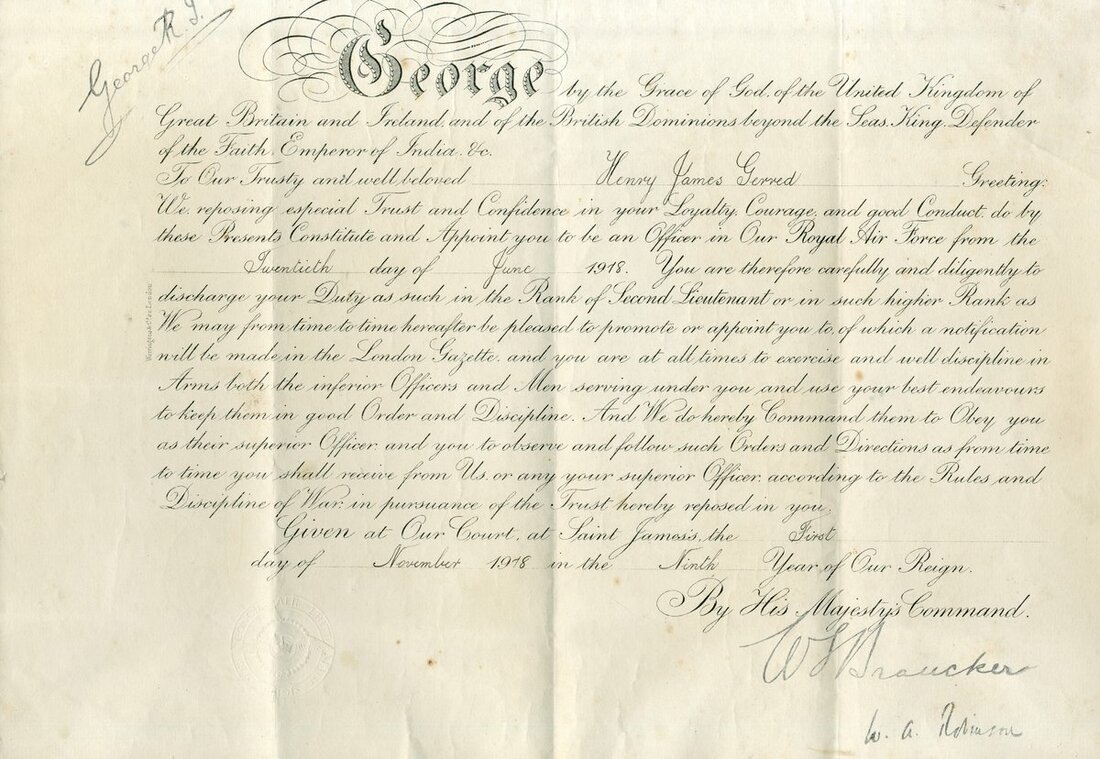 George R. I.
George by the Grace of God, of the United Kingdom of
Great Britain and Ireland, and of the British Dominions beyond the Seas, King, Defender
of the Faith, Emperor of India, &c.
To Our Trusty and well beloved Henry James Gerred Greeting:
We, reposing especial Trust and Confidence in your Loyalty, Courage, and good Conduct, do by
these Presents Constitute and Appoint you to be an Officer in Our Royal Air Force from the
Twentieth day of June 1918. You are therefore carefully and diligently to
discharge your Duty as such in the Rank of Second Lieutenant or in such higher Rank as
We may from time to time hereafter be pleased to promote or appoint you to, of which a notification
will be made in the London Gazette, and you are at all times to exercise and well discipline in
Arms both the inferior Officers and Men serving under you and use your best endeavours
to keep them in good Order and Discipline. And We do hereby Command them to Obey you
as their superior Officer and you to observe and follow such Orders and Directions as from time
to time you shall receive from Us, or any your superior Officer, according to the Rules and
Discipline of War, in pursuance of the Trust hereby reposed in you.
Given at Our Court, at Saint James's, the First
day of November 1918 in the Ninth Year of Our Reign.
By His Majesty's Command.
W S Brancker
W. A. Robinson